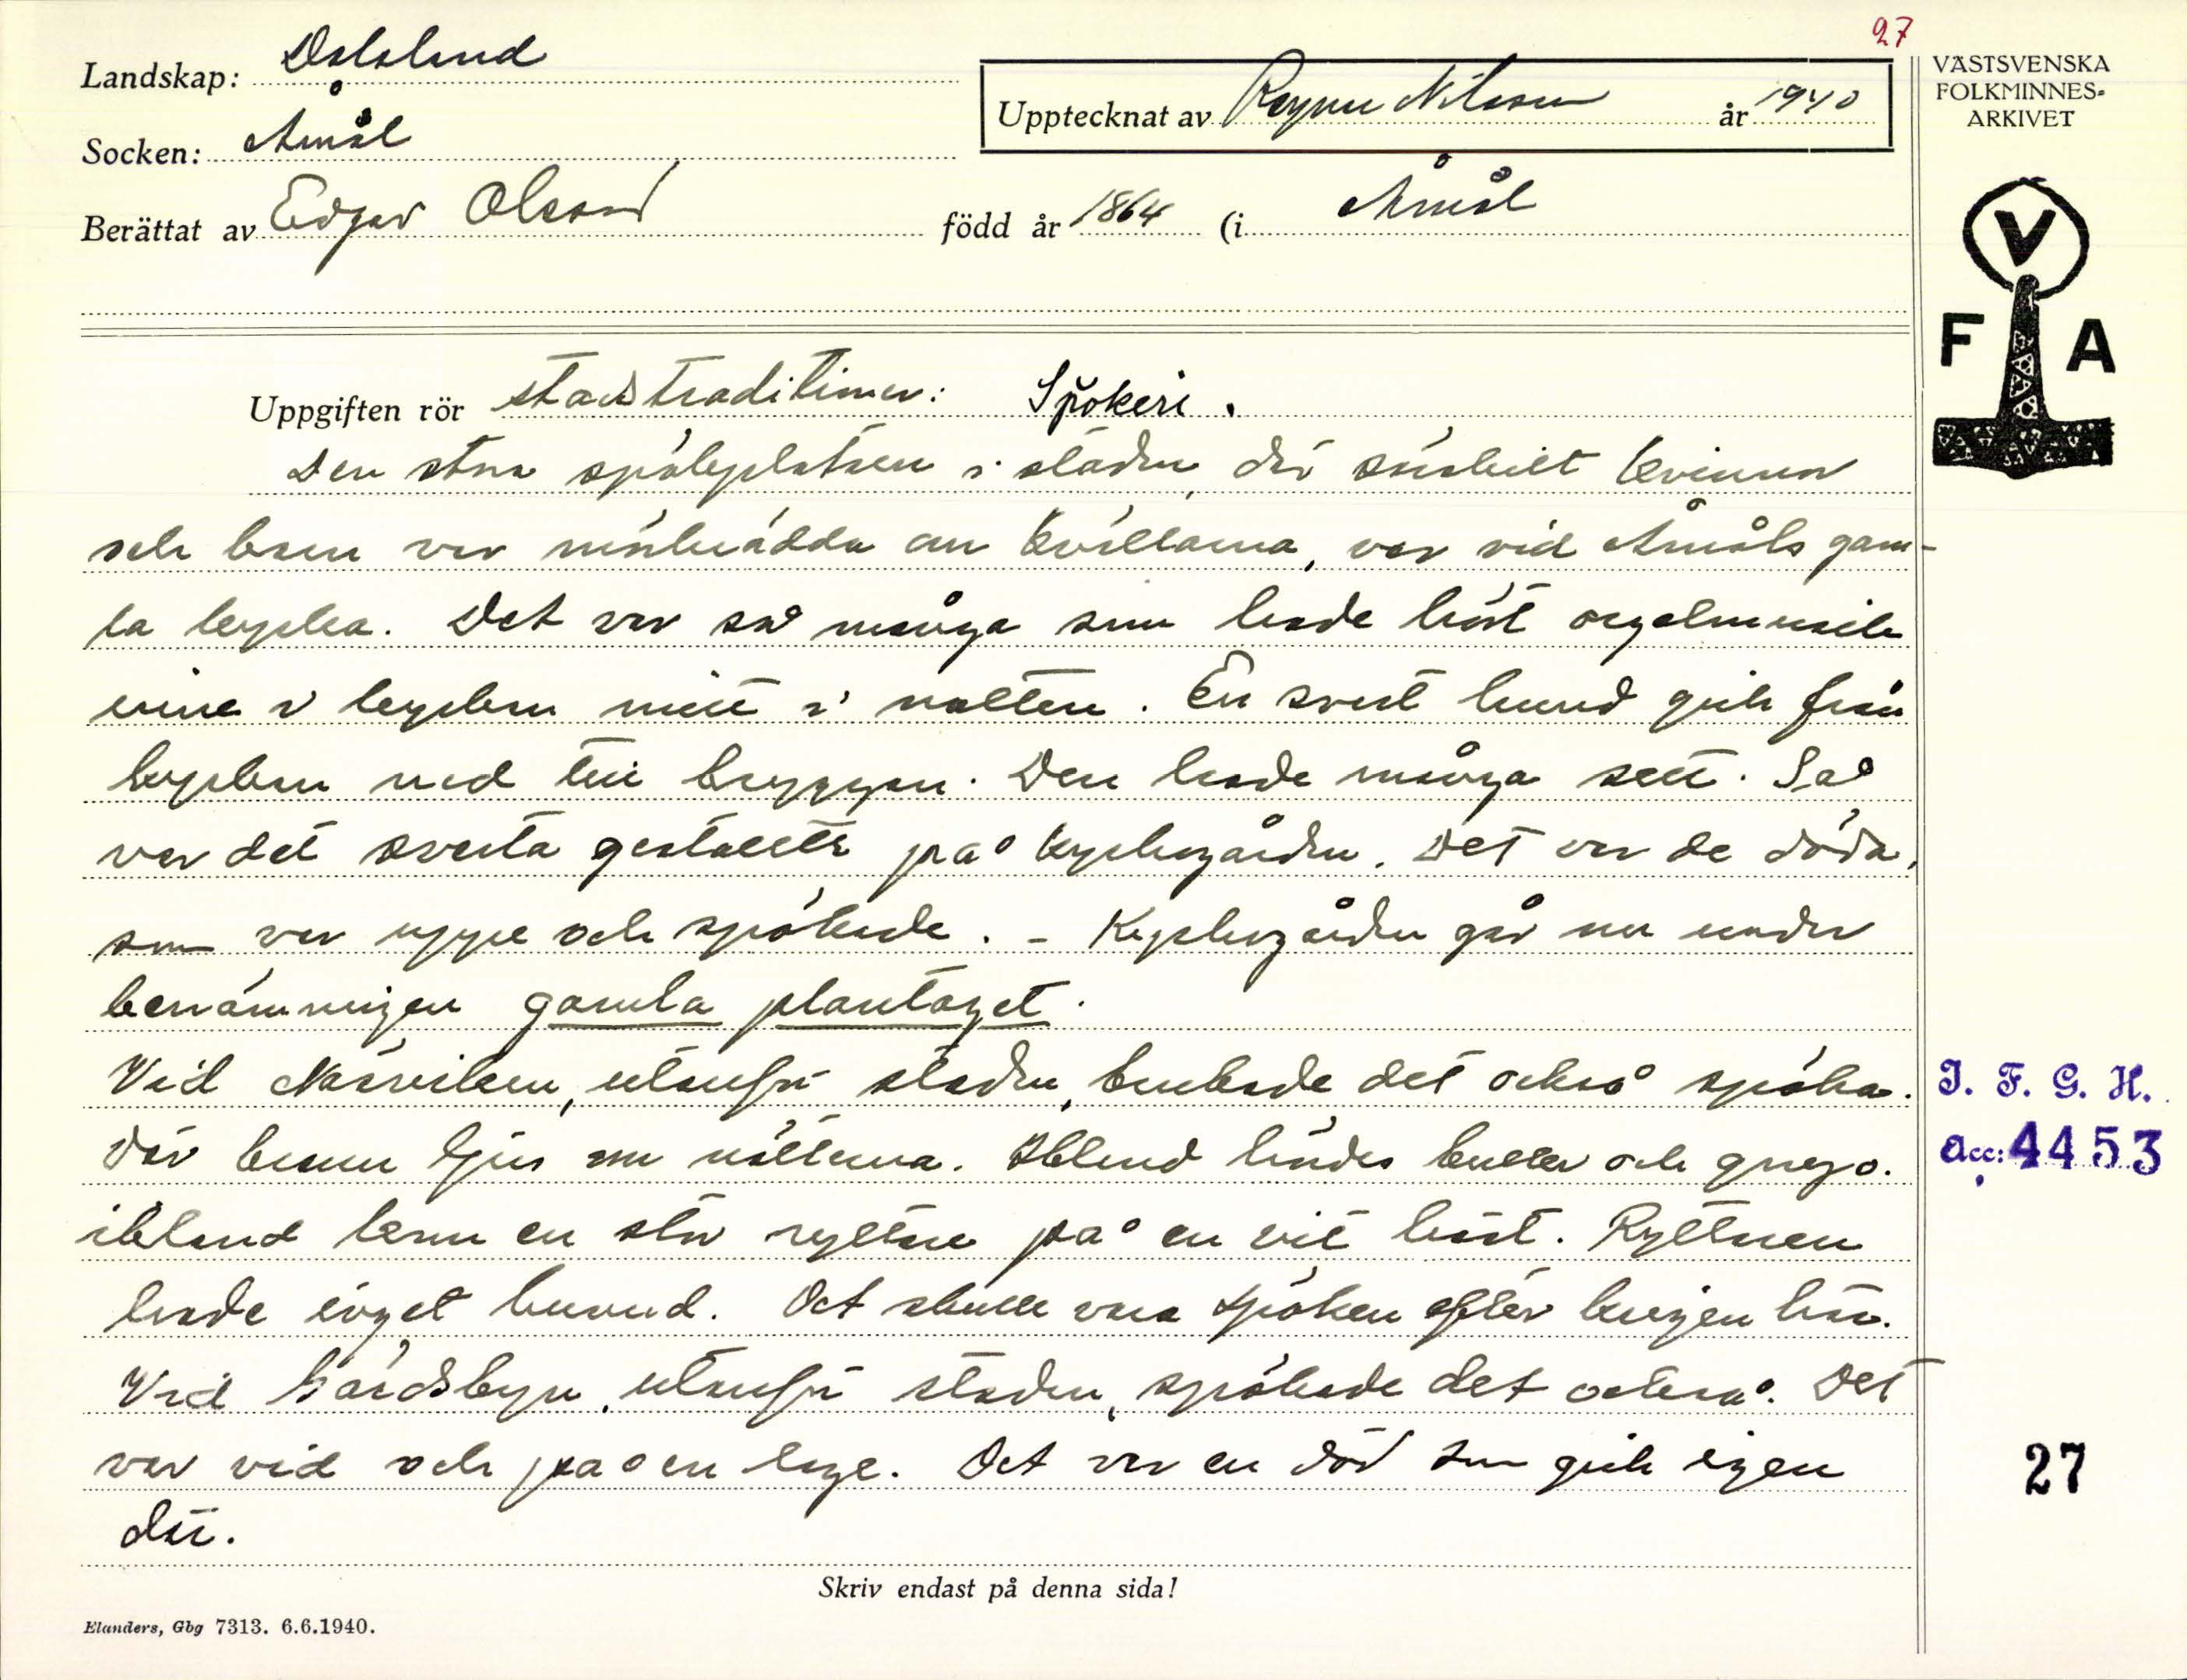 27
Landskap: Dalsland
Upptecknat av Ragnar Nilsson år 1940
VÄSTSVENSKA
FOLKMINNES-
ARKIVET
Socken: Åmål
Berättat av Edgar Olsson född år 1864 (i Åmål
V
F A
Uppgiften rör stadstraditioner: Spökeri.
Den stora spökplatsen i staden, där särskilt kvinnor
och barn var mörkrädda om kvällarna, var vid Åmåls gam-
la kyrka. Det var så många som hade hört orgelmusik
inne i kyrkan mitt i natten. En svart hund gick från
kyrkan ned till bryggan. Den hade många sett. Så
var det svarta gestalter på kyrkogården. Det var de döda,
som var uppe och spökade. - Kyrkogården går nu under
benämningen gamla plantaget.
Vid Näsviken, utanför staden, brukade det också spöka.
Där brann ljus om nätterna. Ibland hördes buller och gny o.
ibland kom en stor ryttare på en vit häst. Ryttaren
hade inget huvud. Det skulle vara spöken efter krigen här.
Vid Gärdsbyn, utanför staden, spökade det också. Det
var vid och på en loge. Det var en död som gick igen
där.
J. F. G. H.
Acc: 4453
27
Skriv endast på denna sida!
Elanders, Gbg 7313. 6.6.1940.